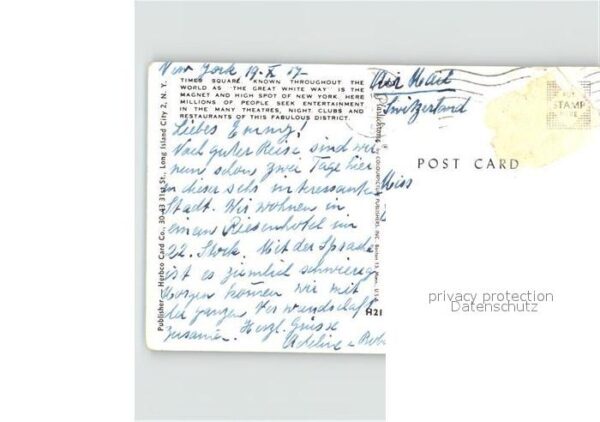 New York 19. X 57-
TIMES SQUARE KNOWN THROUGHOUT THE
WORLD AS "THE GREAT WHITE WAY" IS THE
MAGNET AND HIGH SPOT OF NEW YORK. HERE
MILLIONS OF PEOPLE SEEK ENTERTAINMENT
IN THE MANY THEATRES, NIGHT CLUBS AND
RESTAURANTS OF THIS FABULOUS DISTRICT.
Liebes Emmy!
Nach guter Reise sind wir
nun schon zwei Tage hier
in dieser sehr interessanten
Stadt. Wir wohnen in
einem Riesenhotel im
22. Stock. Mit der Sprache
ist es ziemlich schwierig
Morgen können wir mit
der ganzen Verwandschaft
zusamen. Herzl. Grüsse
Adeline u
Publisher - Herbco Card Co., 30-43 31st St., Long Island City 2, N. Y.
PUBLISHERS, INC.
U.S.A.
H21
Air Mail
Switzerland
STAMP
HERE
POST CARD
Miss
privacy protection
Datenschutz